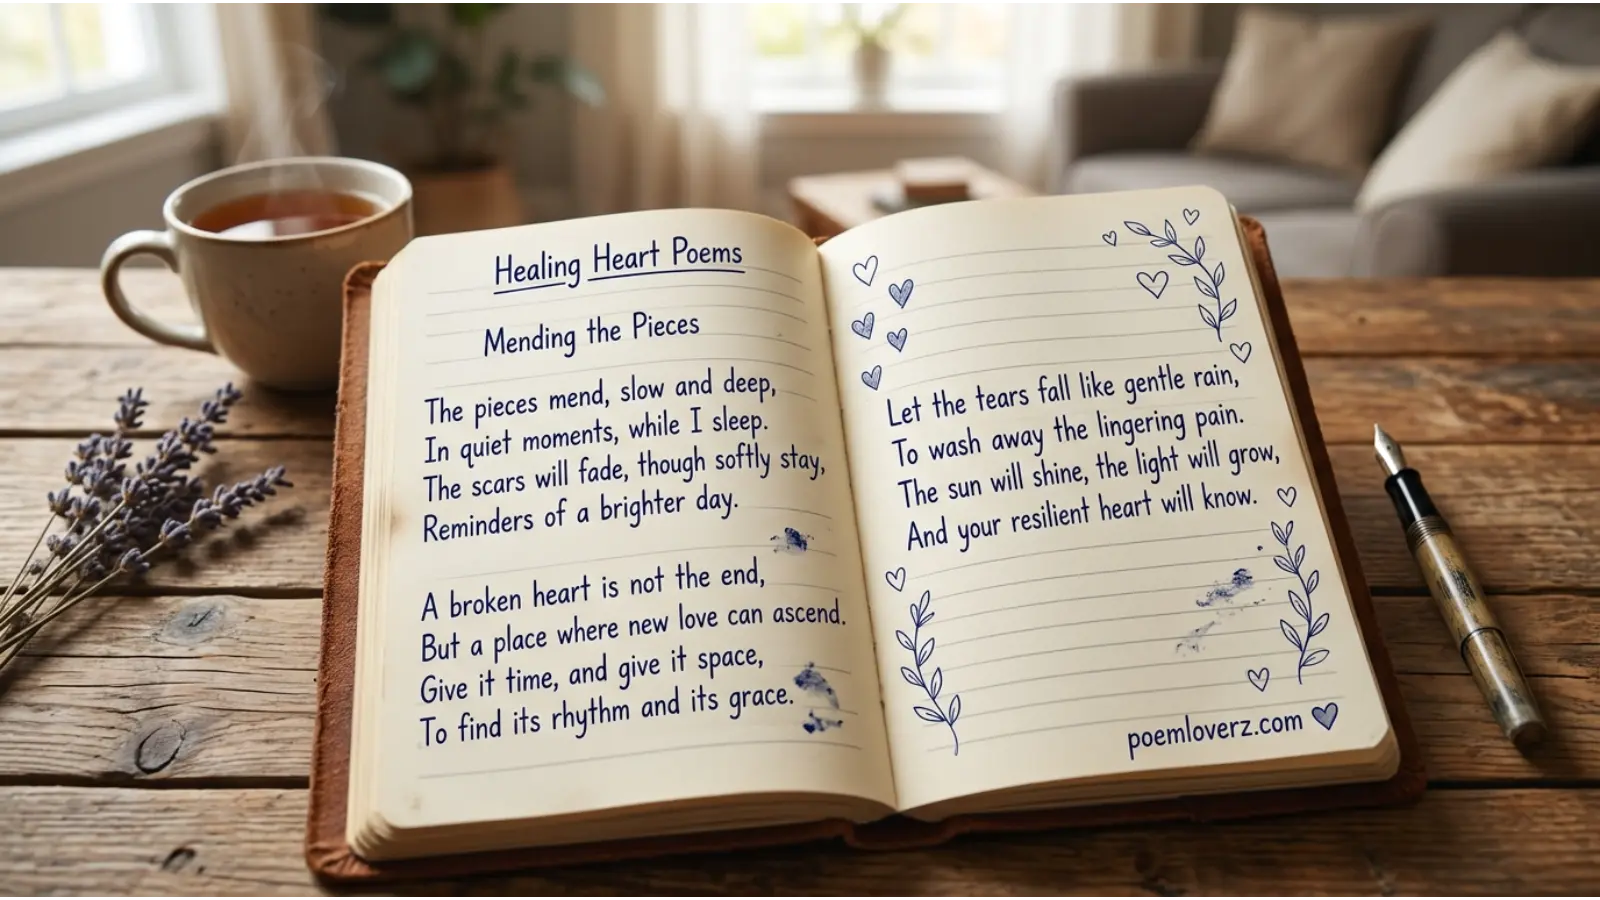 Healing Heart Poems
Mending the Pieces
The pieces mend, slow and deep,
In quiet moments, while I sleep.
The scars will fade, though softly stay,
Reminders of a brighter day.
A broken heart is not the end,
But a place where new love can ascend.
Give it time, and give it space,
To find its rhythm and its grace.
Let the tears fall like gentle rain,
To wash away the lingering pain.
The sun will shine, the light will grow,
And your resilient heart will know.
poemloverz.com